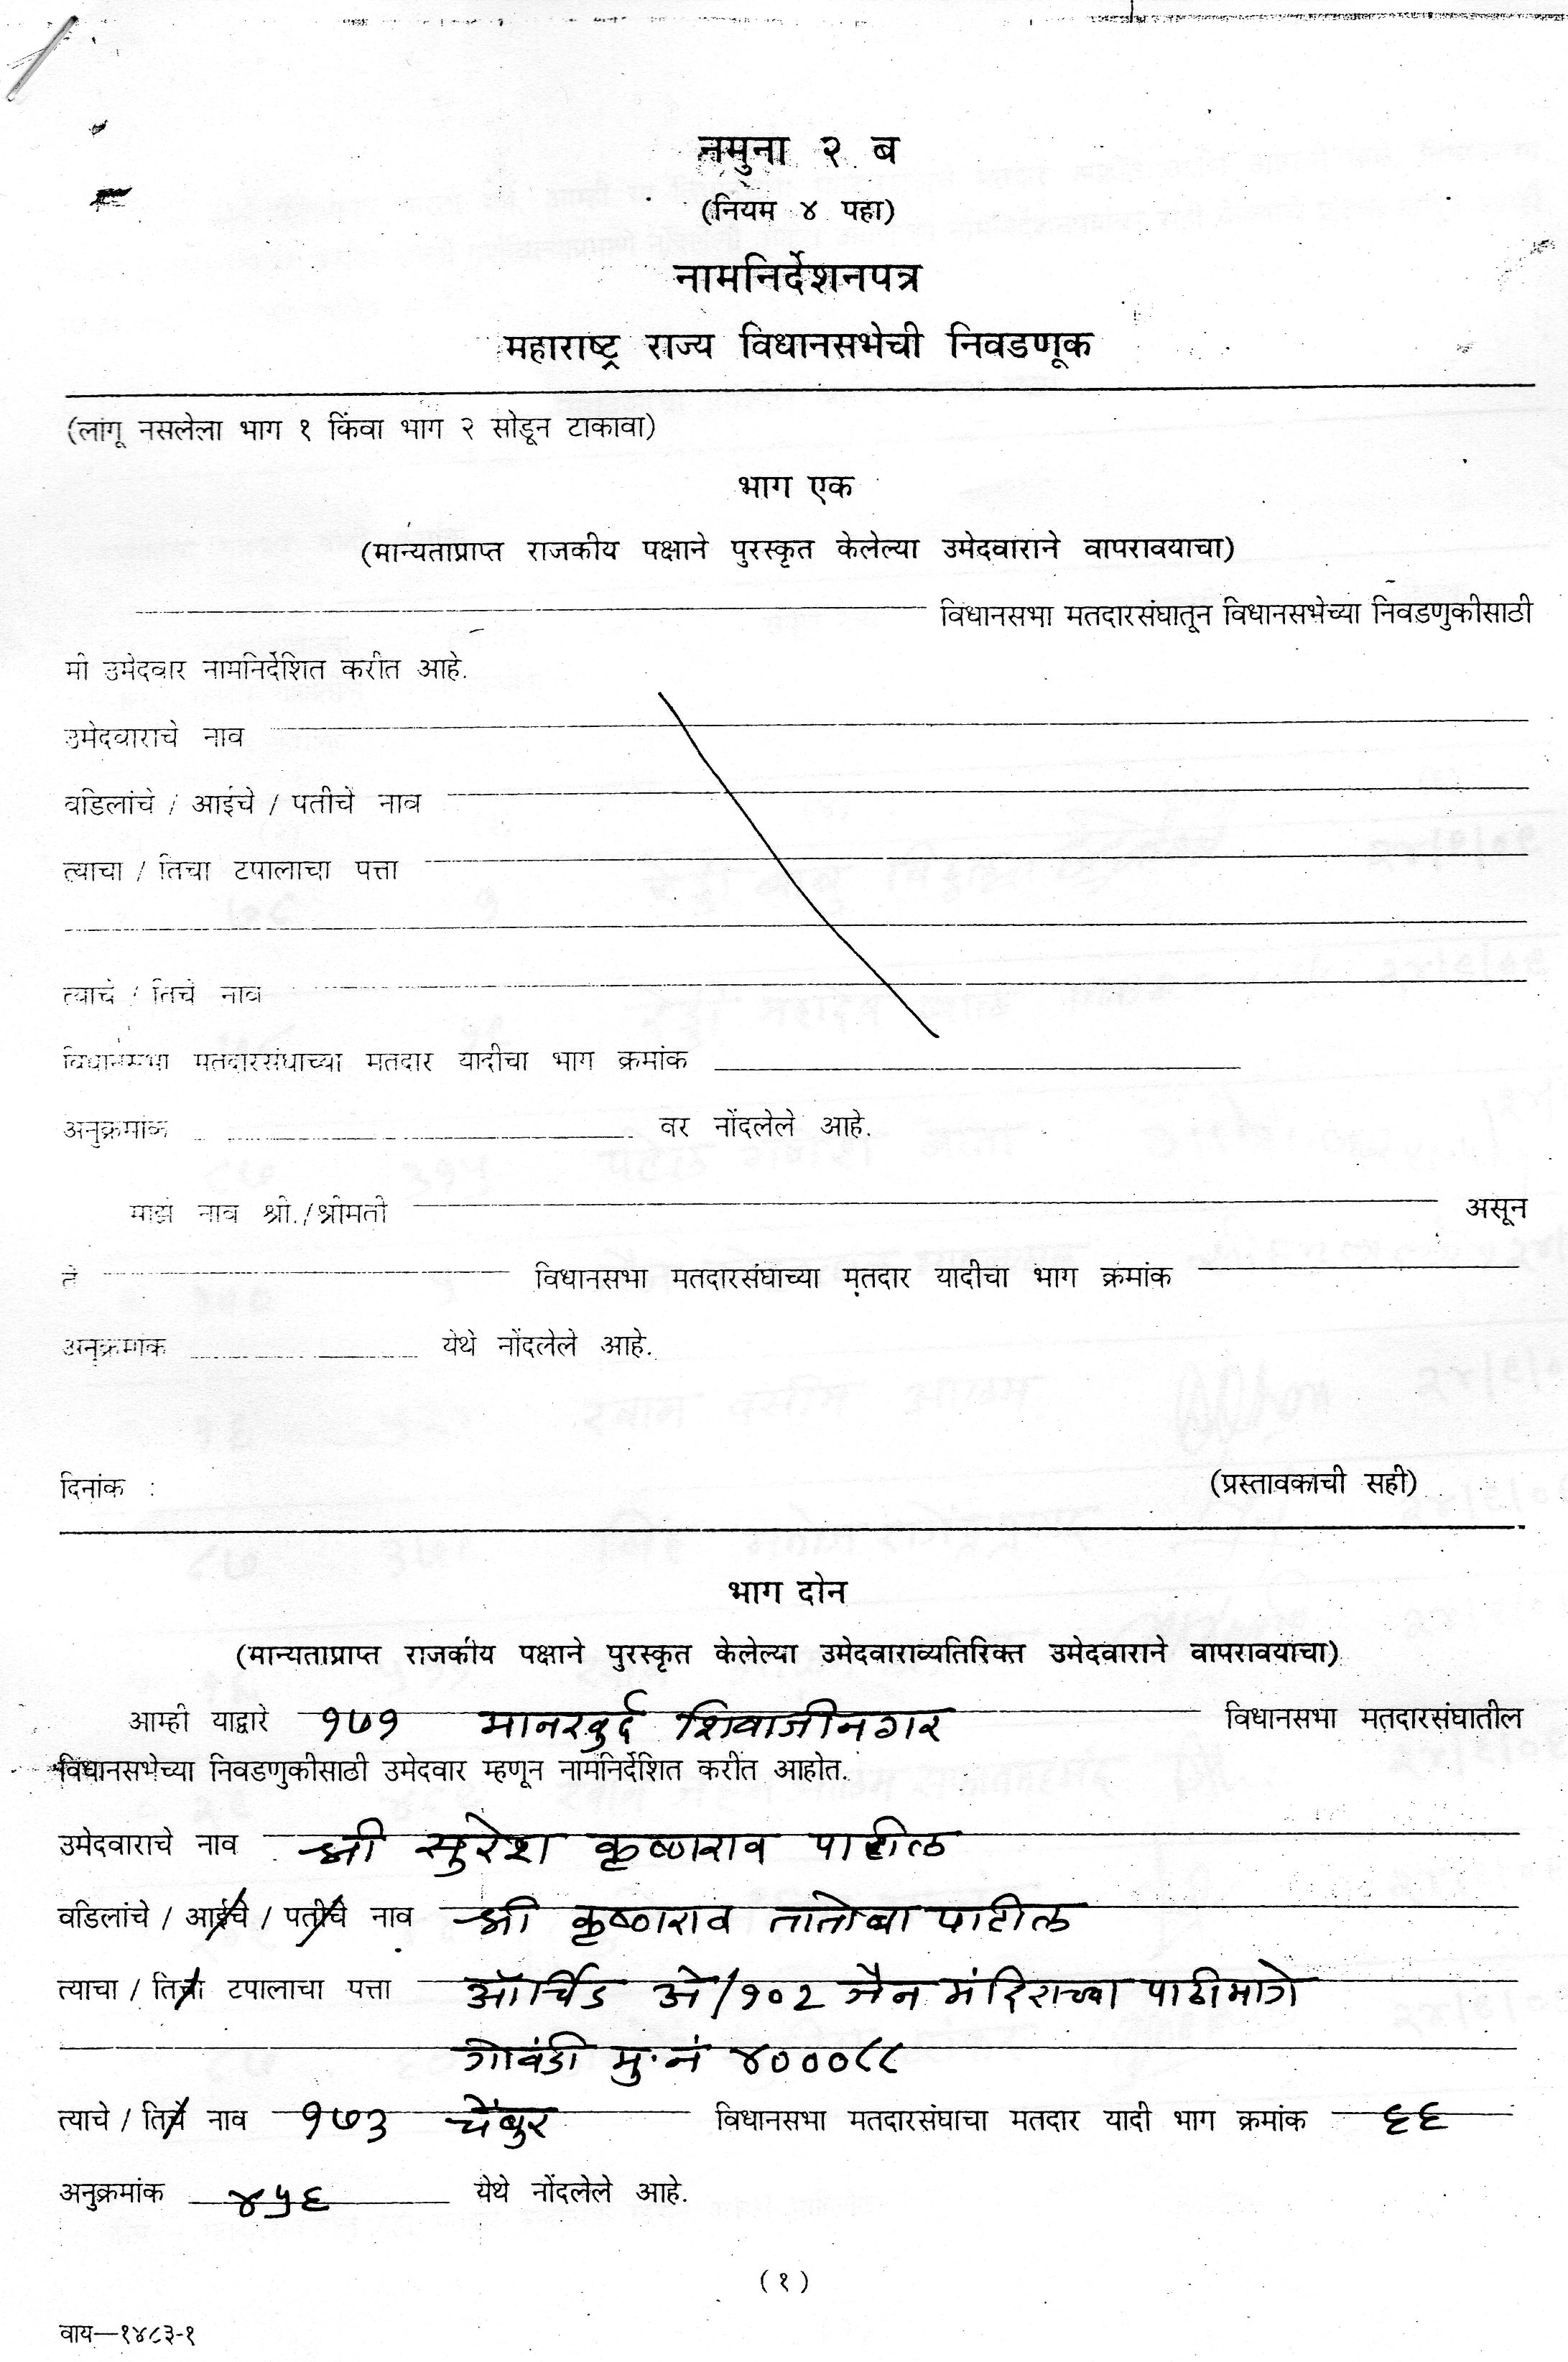 नमुना २ ब
(नियम ४ पहा)
नामनिर्देशनपत्र
महाराष्ट्र राज्य विधानसभेची निवडणूक
(लागू नसलेला भाग १ किंवा भाग २ सोडून टाकावा)
भाग एक
(मान्यताप्राप्त राजकीय पक्षाने पुरस्कृत केलेल्या उमेदवाराने वापरावयाचा)
विधानसभा मतदारसंघातून विधानसभेच्या निवडणुकीसाठी
मी उमेदवार नामनिर्देशित करीत आहे.
उमेदवाराचे नाव
वडिलांचे / आईचे / पतीचे नाव
त्याचा / तिचा टपालाचा पत्ता
त्याचे / तिचे नाव
विधानसभा मतदारसंघाच्या मतदार यादीचा भाग क्रमांक
अनुक्रमांक वर नोंदलेले आहे.
माझे नाव श्री./श्रीमती असून
ते विधानसभा मतदारसंघाच्या मतदार यादीचा भाग क्रमांक
अनुक्रमांक येथे नोंदलेले आहे.
दिनांक : (प्रस्तावकाची सही)
भाग दोन
(मान्यताप्राप्त राजकीय पक्षाने पुरस्कृत केलेल्या उमेदवाराव्यतिरिक्त उमेदवाराने वापरावयाचा)
आम्ही याद्वारे १७१ मानखुर्द शिवाजीनगर विधानसभा मतदारसंघातील
विधानसभेच्या निवडणुकीसाठी उमेदवार म्हणून नामनिर्देशित करीत आहोत.
उमेदवाराचे नाव श्री सुरेश कृष्णराव पाटील
वडिलांचे / आईचे / पतीचे नाव श्री कृष्णराव तातोबा पाटील
त्याचा / तिचा टपालाचा पत्ता ऑर्चिड अे/१०२ जैन मंदिराच्या पाठीमागे
गोवंडी मु.नं ४०००८८
त्याचे / तिचे नाव १७३ चेंबुर विधानसभा मतदारसंघाचा मतदार यादी भाग क्रमांक ६६
अनुक्रमांक ४५६ येथे नोंदलेले आहे.
(१)
वाय—१४८३-१